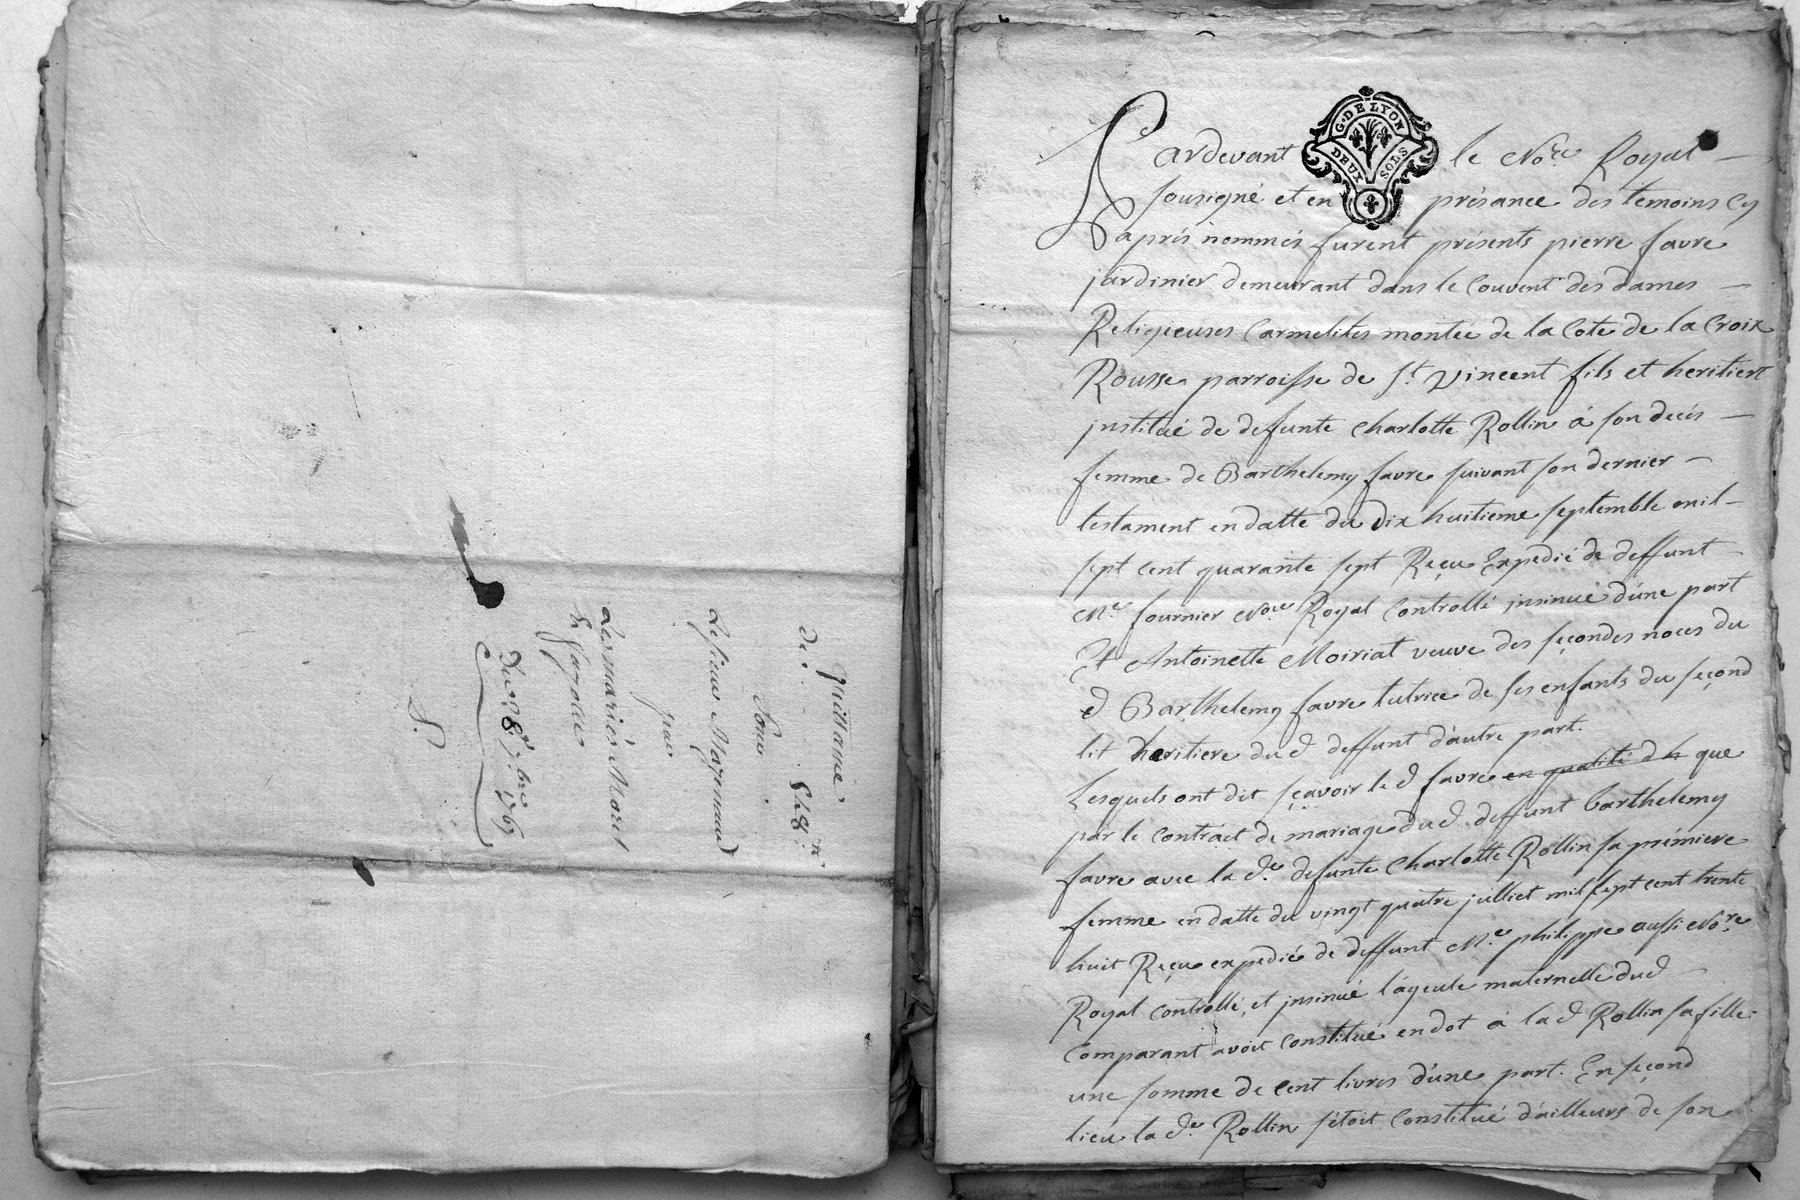 quittance
de
pour
Le sieur
par
Les mariés Morel
& Jayoux
Du 28 7bre 1769
S.
G. DE LYON
DEUX SOLS
Pardevant le Nore Royal
sousigné et en présance des temoins cy
après nommés furent présents pierre favre
jardinier demeurant dans le Couvent des dames
Religieuses Carmelites montée de la Cote de la Croix
Rousse parroisse de St. Vincent fils et heritier
justitué de defunte Charlotte Rollin à son decés
femme de Barthelemy favre suivant son dernier
testament en datte du dix huitieme septembre mil
sept cent quarante sept Reçu Expedié de deffunt
Me fournier Nore Royal Controllé jnsinué d'une part
Et Antoinette Moiriat veuve des seçondes noces du
d Barthelemy favre tutrice de ses enfants du seçond
lit heritiere dud deffunt d'autre part.
Lesquels ont dit sçavoir led favre en qualité d h que
par le contract de mariage dud. deffunt barthelemy
favre avec la de. defunte Charlotte Rollin sa premiere
femme en datte du vingt quatre julliet mil sept cent trente
huit Reçu expedié de deffunt Me. philippe aussi Nore
Royal controllé, et jnsinué l'ayeule maternelle dud
Comparant avoit constitué en dot à la d Rollin sa fille
une somme de cent livres d'une part. En seçond
lieu la de. Rollin s'étoit Constitué d'ailleurs de son